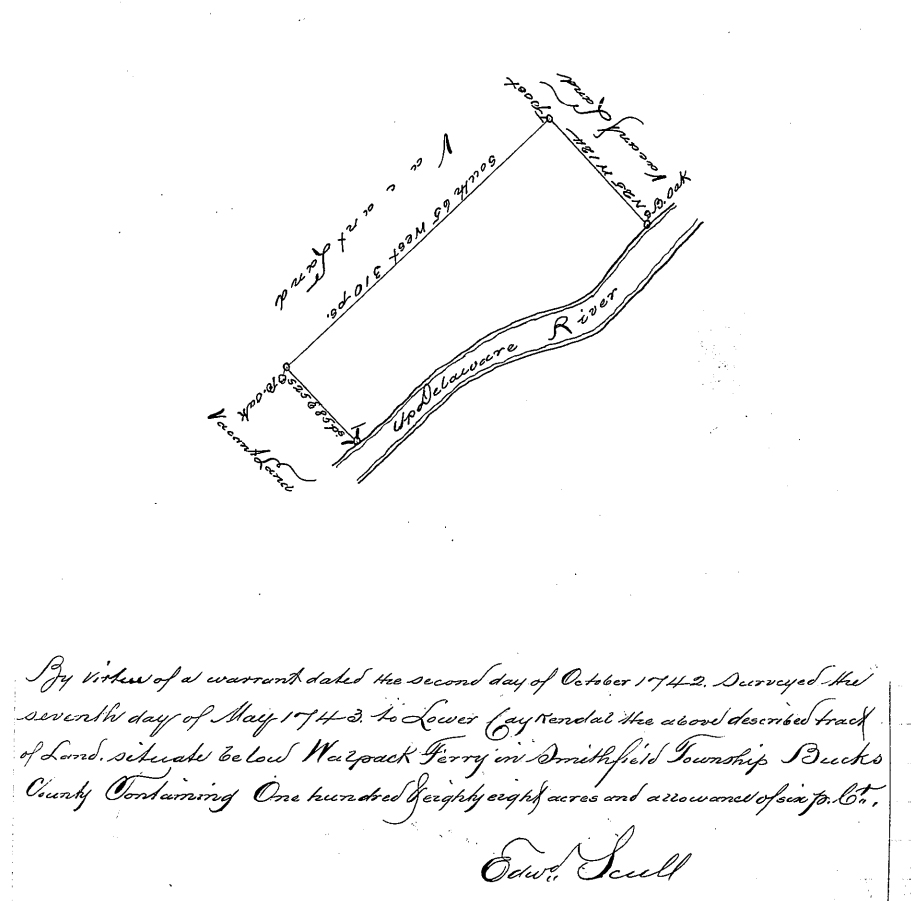 post
Vacant Land
N25 W 134
B. Oak
Vacant Land
South 65 West 310 ps.
Up Delaware River
B. Oak
S25 E 85 ps.
Vacant Land
By virtue of a warrant dated the second day of October 1742. Surveyed the
seventh day of May 1743. to Lower Cay Kendal the above described tract
of Land. situate below Walpack Ferry in Smithfield Township Bucks
County Containing One hundred & eighty eight acres and allowance of six p. Ct.
Edwd. Scull